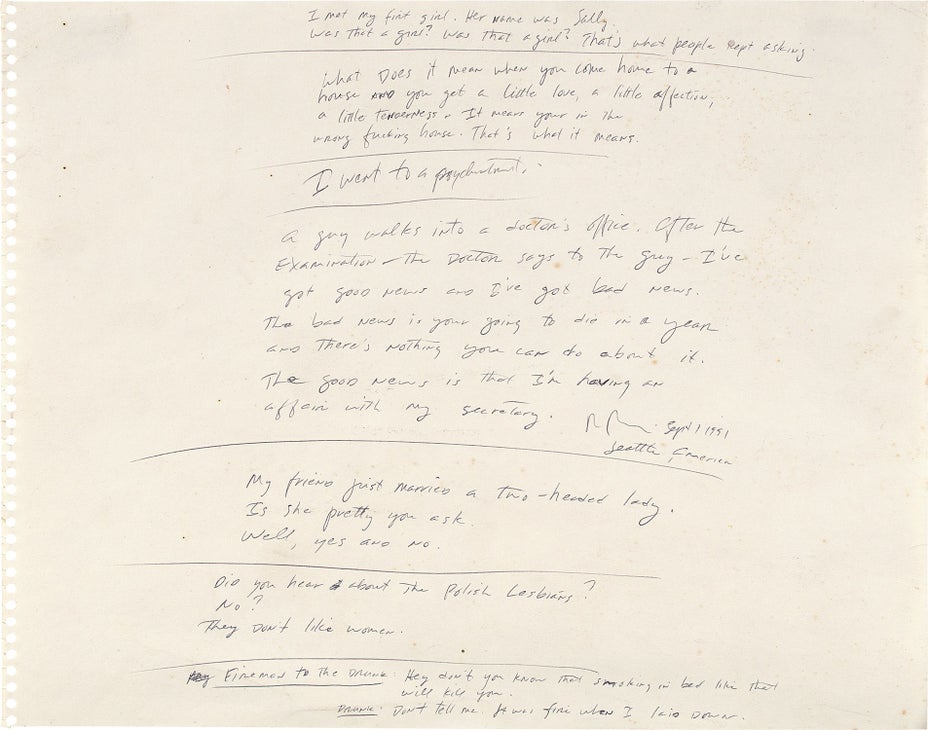 I met my first girl. Her name was Sally.
Was that a girl? Was that a girl? That's what people kept asking.
What Does it mean when you come home to a
house AND you get a little love, a little affection,
a little Tenderness. It means your in the
wrong fucking house. That's what it means.
I went to a psychiatrist.
A guy walks into a doctor's office. After the
Examination – the Doctor says to the guy – I've
got good news and I've got bad news.
The bad news is your going to die in a year
and There's nothing you can do about it.
The good news is that I'm having an
affair with my secretary.
Sept 1 1991
Seattle, America
My friend just married a two-headed lady.
Is she pretty you ask.
Well, yes and no.
Did you hear about The Polish Lesbians?
No?
They Don't like women.
Fireman to the Drunk: Hey don't you know that smoking in bed like that
will kill you.
Drunk: Don't tell me. It was fire when I laid Down.